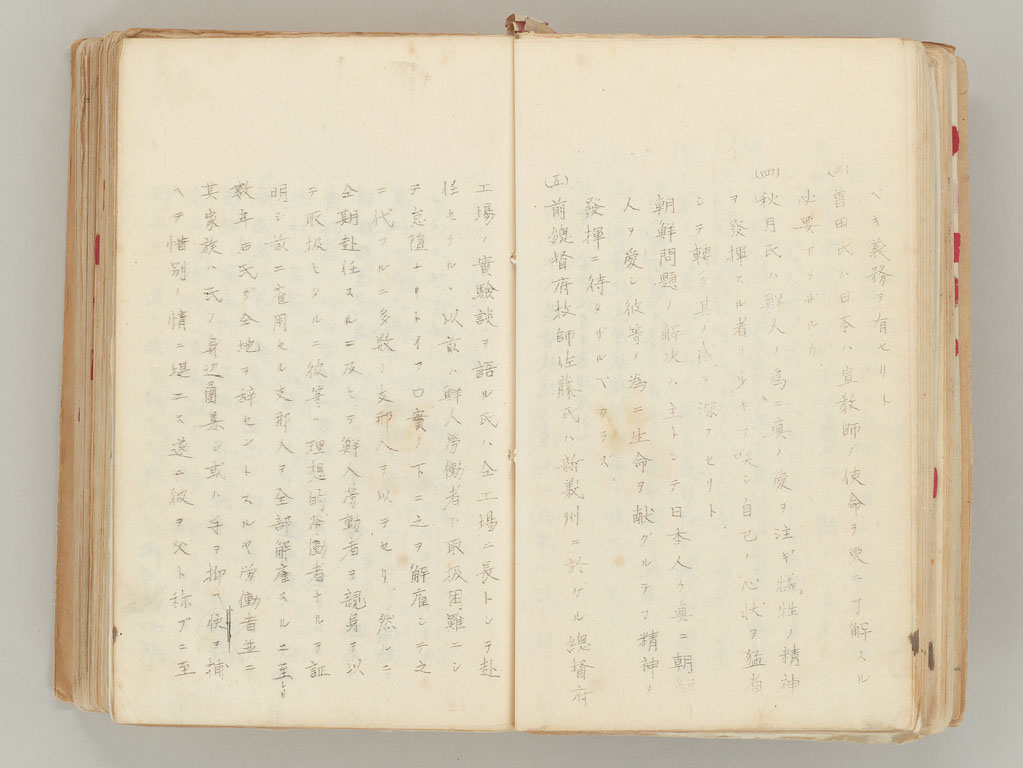 ベキ義務ヲ有セリト
(三)曽田氏ハ日本ハ宣教師ノ使命ヲ更ニ了解スル
必要アラザルカ
(四)秋月氏ハ鮮人ノ為ニ真ノ愛ヲ注ギ犠牲ノ精神
ヲ発揮スル者ノ少キヲ
シテ轉タ其ノ感ヲ深フセリト
朝鮮問題ノ解決ハ主トシテ日本人ガ真ニ朝鮮
人ヲ愛シ彼等ノ為ニ生命ヲ献グルテフ精神ノ
發揮ニ待タザルベカラズ
(五)前總督府技師佐藤氏ハ新義州ニ於ケル總督府
工場ノ實驗談ヲ語ル氏ハ仝工場ニ長トシテ赴
任セラル、以前ハ鮮人労働者ハ取扱困難ニシ
テ怠惰ナリトイフ口實ノ下ニ之ヲ解雇シテ之
ニ代フルニ多数ノ支那人ヲ以テセリ然ルニ
仝期赴任スルニ及ビテ鮮人労動者ヲ親身ヲ以
テ取扱ヒタルニ彼等ハ理想的労働者ナルヲ証
明シ前ニ雇用セシ支那人ヲ全部解雇スルニ至
数年后氏ガ仝地ヲ辞セントスルヤ労働者並ニ
其家族ハ氏ノ身辺ニ 或ハ手ヲ 袂ヲ捕
ヘテ惜別ノ情ニ堪エス遂ニ彼ヲ父ト称ブニ至